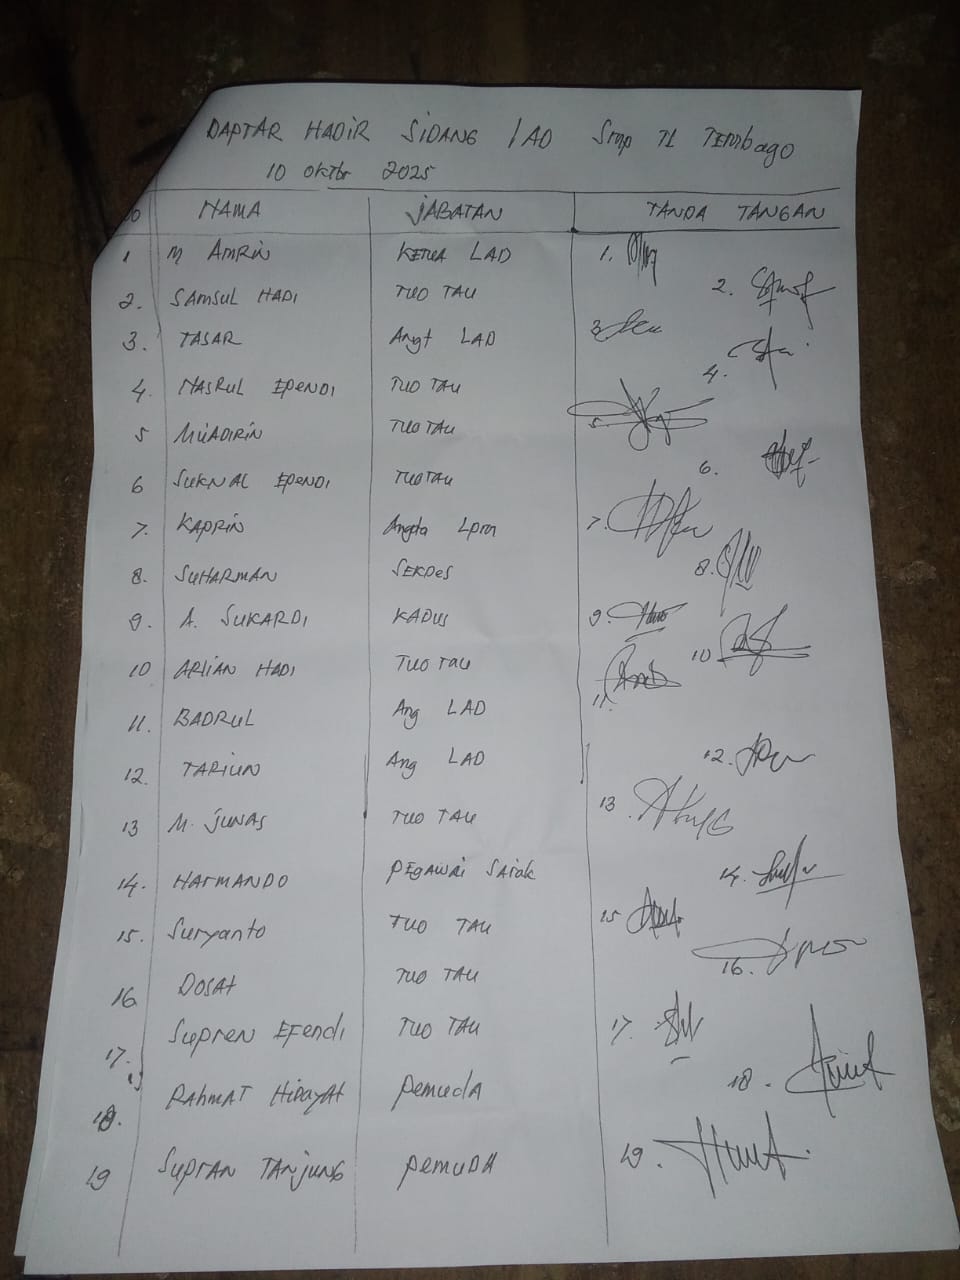 DAPTAR HADIR SIDANG LAD Smp TL TEMbago
10 Oktbr 2025
NO NAMA JABATAN TANDA TANGAN
1 M AMRIN KETUA LAD 1.
2. SAMSUL HADI TUO TAU 2.
3. TASAR Angt LAD 3
4. NASRUL EPENDI TUO TAU 4.
5 MUADIRIN TUO TAU 5.
6 SUKNAL EPENDI TUO TAU 6.
7. KAPRIN Angta Lpm 7.
8. SUHARMAN SEKDES 8.
9. A. SUKARDI KADUS 9.
10 ARLIAN HADI TUO TAU 10
11. BADRUL Ang LAD 11.
12. TARIUN Ang LAD 12.
13 M. JUNAS TUO TAU 13
14. HARMANDO PEGAWAI SARAK 14.
15. Suryanto TUO TAU 15
16 DOSAT TUO TAU 16.
17. Supren EFendi TUO TAU 17.
18. RAHMAT HIDAYAT pemuda 18.
19 SUPRAN TANJUNG pemuDA 19.